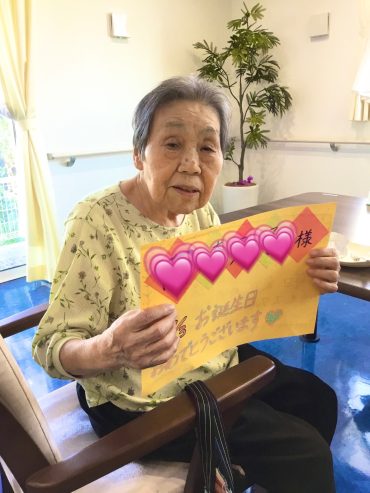 様
お誕生日
おめでとうございます